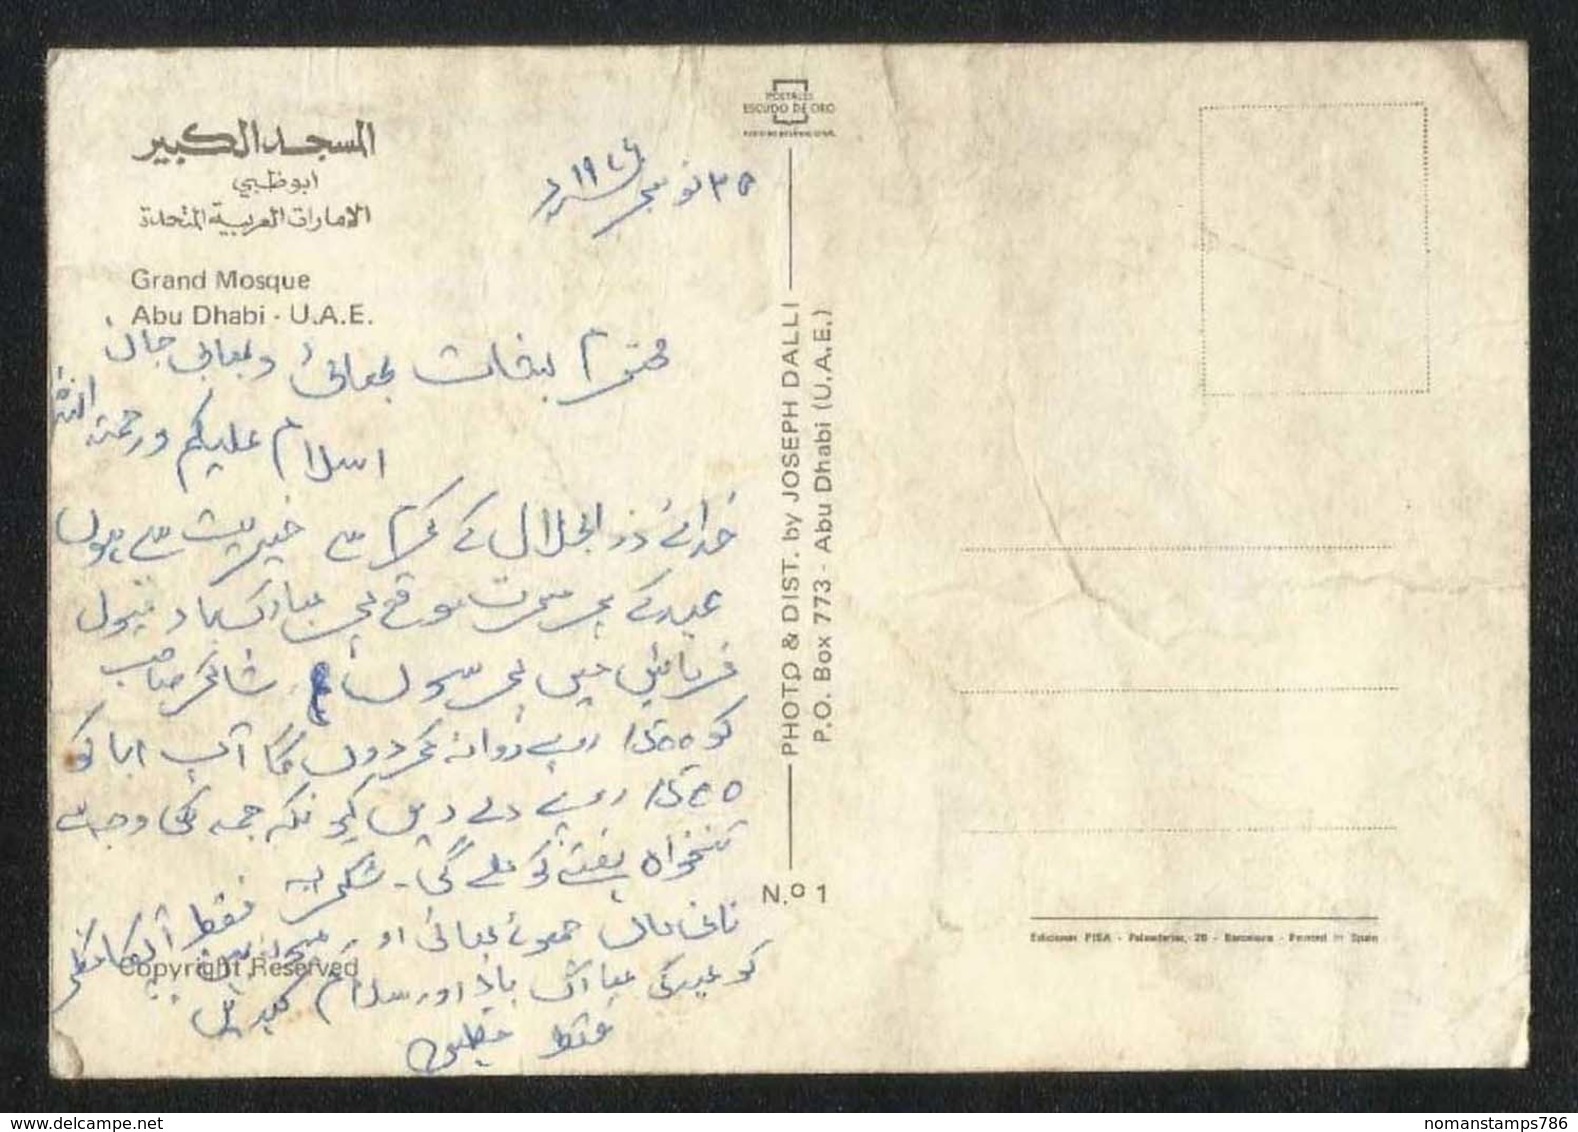 المسجد الكبير
ابوظبي
الامارات العربية المتحدة
Grand Mosque
Abu Dhabi - U.A.E.
نومبر
محترم بھائی و بھابی جان
اسلام علیکم ورحمۃ اللہ
خدائے ذوالجلال کے کرم سے خیریت سے ہوں
عید کے پر مسرت موقع پر مبارکباد قبول
فرمائیں میں پرسوں شاکر صاحب
کو 1500 روپے روانہ کر دوں گا آپ ابا کو
1500 روپے دے دیں کیونکہ جمعہ کی وجہ سے
تنخواہ ہفتے کو ملے گی۔ شکریہ
نانی ماں چھوٹے بھائی اور
فقط آپکا
کو عید کی مبارک باد اور سلام
فقط
Copyright Reserved
POSTALES
ESCUDO DE ORO
PHOTO & DIST. by JOSEPH DALLI
P.O. Box 773 - Abu Dhabi (U.A.E.)
N.º 1
Ediciones FISA - Palaudarias, 26 - Barcelona - Printed in Spain
nomanstamps786